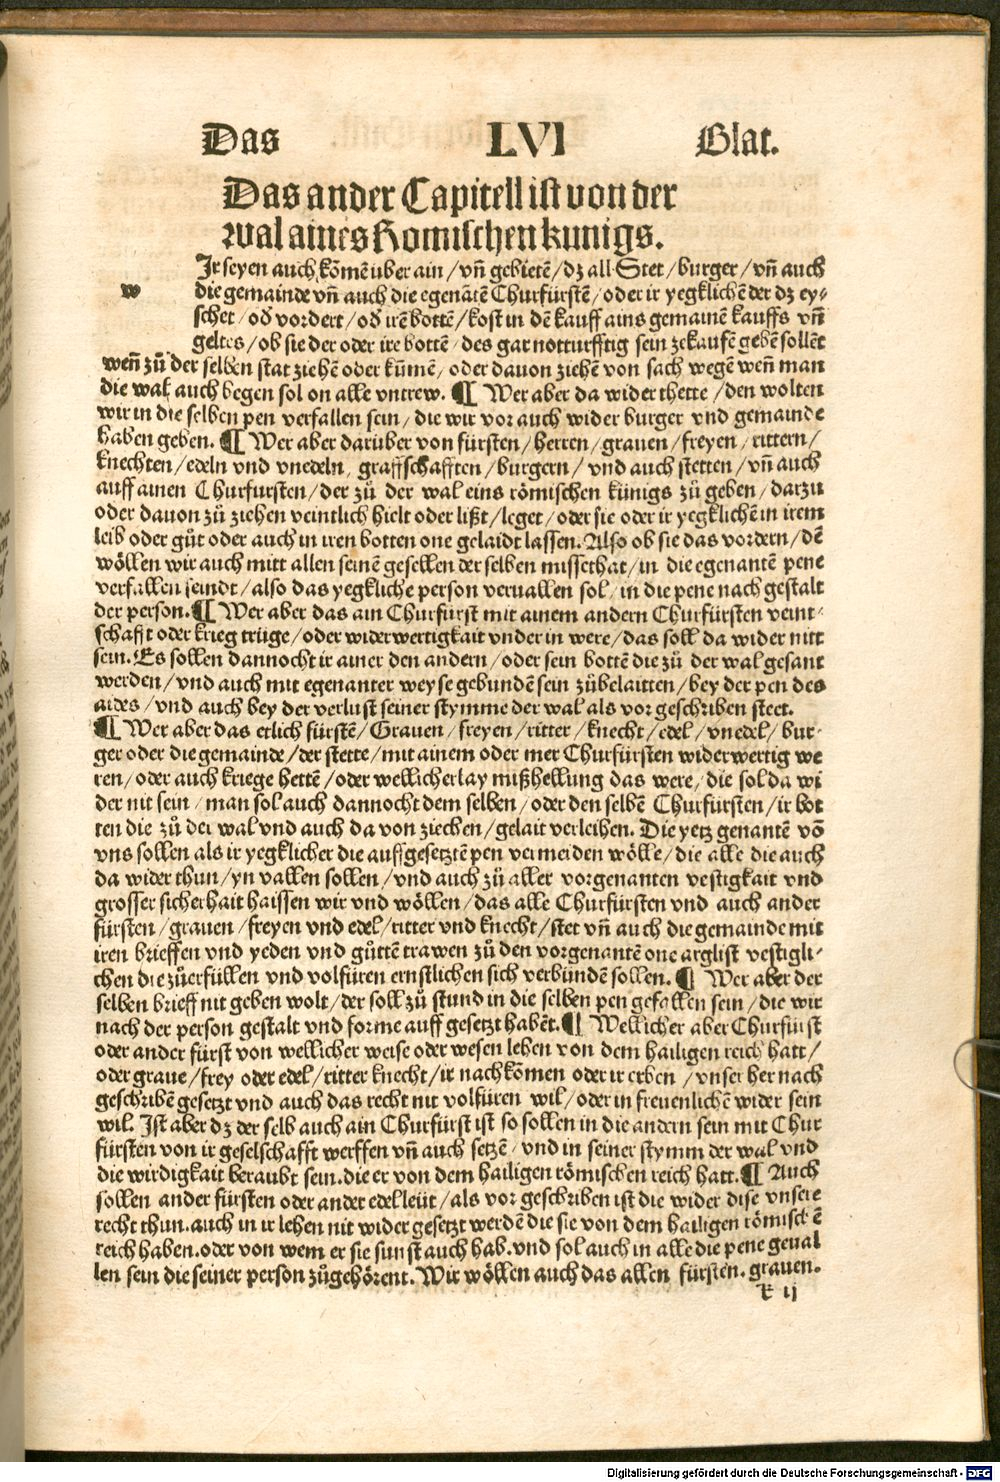 Das LVI Blat.
Das ander Capitell ist von der
wal aines Romischen kunigs.
Ir seyen auch kōmē uber ain / vñ gebietē / dz all Stet / burger / vñ auch
w die gemainde vñ auch die egenātē Churfürstē / oder ir yegklichē der dz ey⸗
schet / oď vordert / oď irē bottē / kost in dē kauff ains gemainē kauffs vñ
geltes / ob sie der oder ire bottē / des gar notturfftig sein zekaufē gebē sollēt
weñ zů der selben stat ziehē oder kūmē / oder davon ziehē von sach wegē weñ man
die wal auch begen sol on alle vntrew. ¶ Wer aber da wider thette / den wolten
wir in die selben pen verfallen sein / die wir vor auch wider burger vnd gemainde
haben geben. ¶ Wer aber darüber von fürsten / herren / grauen / freyen / rittern /
knechten / edeln vnd vnedeln / graffschafften / burgern / vnd auch stetten / vñ auch
auff ainen Churfursten / der zů der wal eins römischen künigs zů geben / darzu
oder dauon zů ziehen veintlich hielt oder lißt / leget / oder sie oder ir yegklichē in irem
leib oder gůt oder auch in iren botten one gelaidt lassen. Also ob sie das vordern / dē
wöllen wir auch mitt allen seinē gesellen der selben missethat / in die egenantē pene
verfallen seindt / also das yegkliche person veruallen sol / in die pene nach gestalt
der person. ¶ Wer aber das ain Churfürst mit ainem andern Churfürsten veint⸗
schafft oder krieg trüge / oder widerwertigkait vnder in were / das soll da wider nitt
sein. Es sollen dannocht ir ainer den andern / oder sein bottē die zů der wal gesant
werden / vnd auch mit egenanter weyse gebundē sein zůbelaitten / bey der pen des
aides / vnd auch bey der verlust seiner stymme der wal als vor geschriben steet.
¶ Wer aber das etlich fürstē / Grauen / freyen / ritter / knecht / edel / vnedel / bur⸗
ger oder die gemainde / der stette / mit ainem oder mer Churfürsten widerwertig we
ren / oder auch kriege hettē / oder wellicherlay mißhellung das were / die sol da wi
der nit sein / man sol auch dannocht dem selben / oder den selbē Churfürsten / ir bot
ten die zů der wal vnd auch da von ziechen / gelait verleihen. Die yetz genantē vō
vns sollen als ir yegklicher die auffgesetztē pen vermeiden wölle / die alle die auch
da wider thun / yn vallen sollen / vnd auch zů aller vorgenanten vestigkait vnd
grosser sicherhait haissen wir vnd wöllen / das alle Churfürsten vnd auch ander
fürsten / grauen / freyen vnd edel / ritter vnd knecht / stet vñ auch die gemainde mit
iren brieffen vnd yeden vnd gůttē trawen zů den vorgenantē one arglist vestigli⸗
chen die zůerfüllen vnd volfüren ernstlichen sich verbündē sollen. ¶ Wer aber der
selben brieff nit geben wolt / der soll zů stund in die selben pen gefallen sein / die wir
nach der person gestalt vnd forme auff gesetzt habēt. ¶ Wellicher aber Churfürst
oder ander fürst von wellicher weise oder wesen lehen von dem hailigen reich hatt /
oder graue / frey oder edel / ritter knecht / ir nachkōmen oder ir erben / vnser her nach
geschribē gesetzt vnd auch das recht nit volfüren wil / oder in freuenlichē wider sein
wil. Ist aber dz der selb auch ain Churfürst ist so sollen in die andern sein mit Chur
fürsten von ir geselschafft werffen vñ auch setzē / vnd in seiner stymm der wal vnd
die wirdigkait beraubt sein. die er von dem hailigen römischen reich hatt. ¶ Auch
sollen ander fürsten oder ander edelleüt / als vor geschriben ist die wider dise vnsere
recht thun. auch in ir lehen nit wider gesetzt werdē die sie von dem hailigen römischē
reich haben. oder von wem er sie sunst auch hab. vnd sol auch in alle die pene geual
len sein die seiner person zůgehörent. Wir wöllen auch das allen fürsten. grauen.
k ij
Digitalisierung gefördert durch die Deutsche Forschungsgemeinschaft - DFG